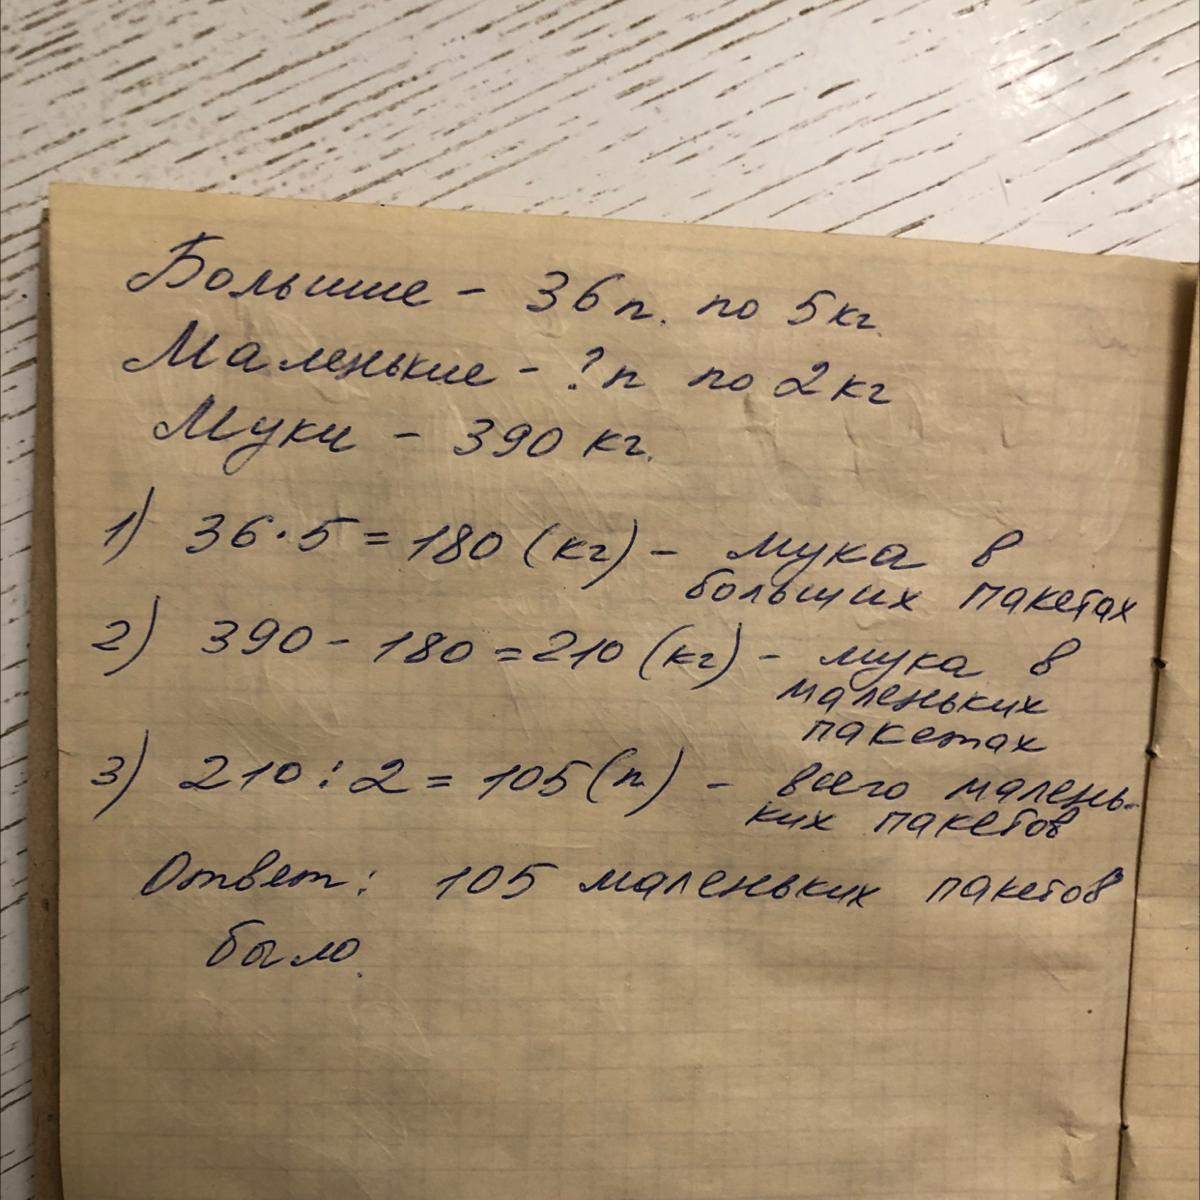 Большие - 36 п. по 5 кг.
Маленькие - ? п по 2 кг
Муки - 390 кг.
1) 36 · 5 = 180 (кг) - мука в
больших пакетах
2) 390 - 180 = 210 (кг) - мука в
маленьких
пакетах
3) 210 : 2 = 105 (п.) - всего малень-
ких пакетов
Ответ: 105 маленьких пакетов
было.